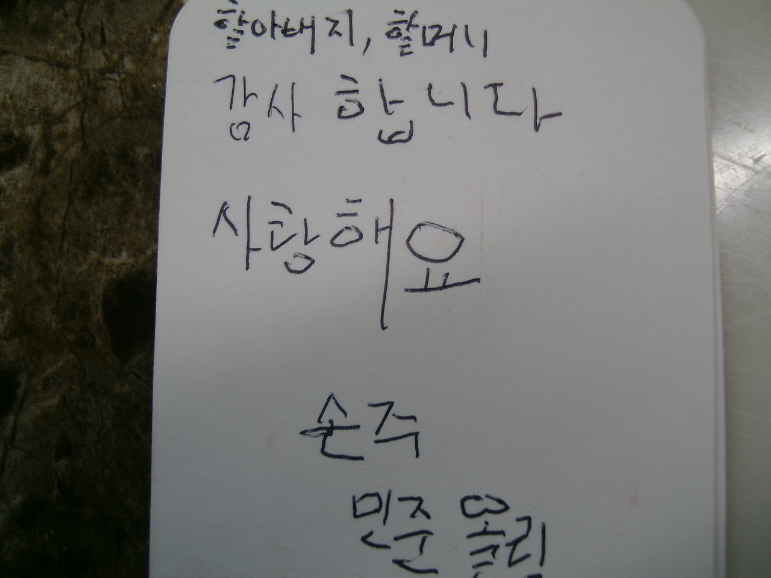 할아버지, 할머니
감사 합니다
사랑해요
손주
민준 올림